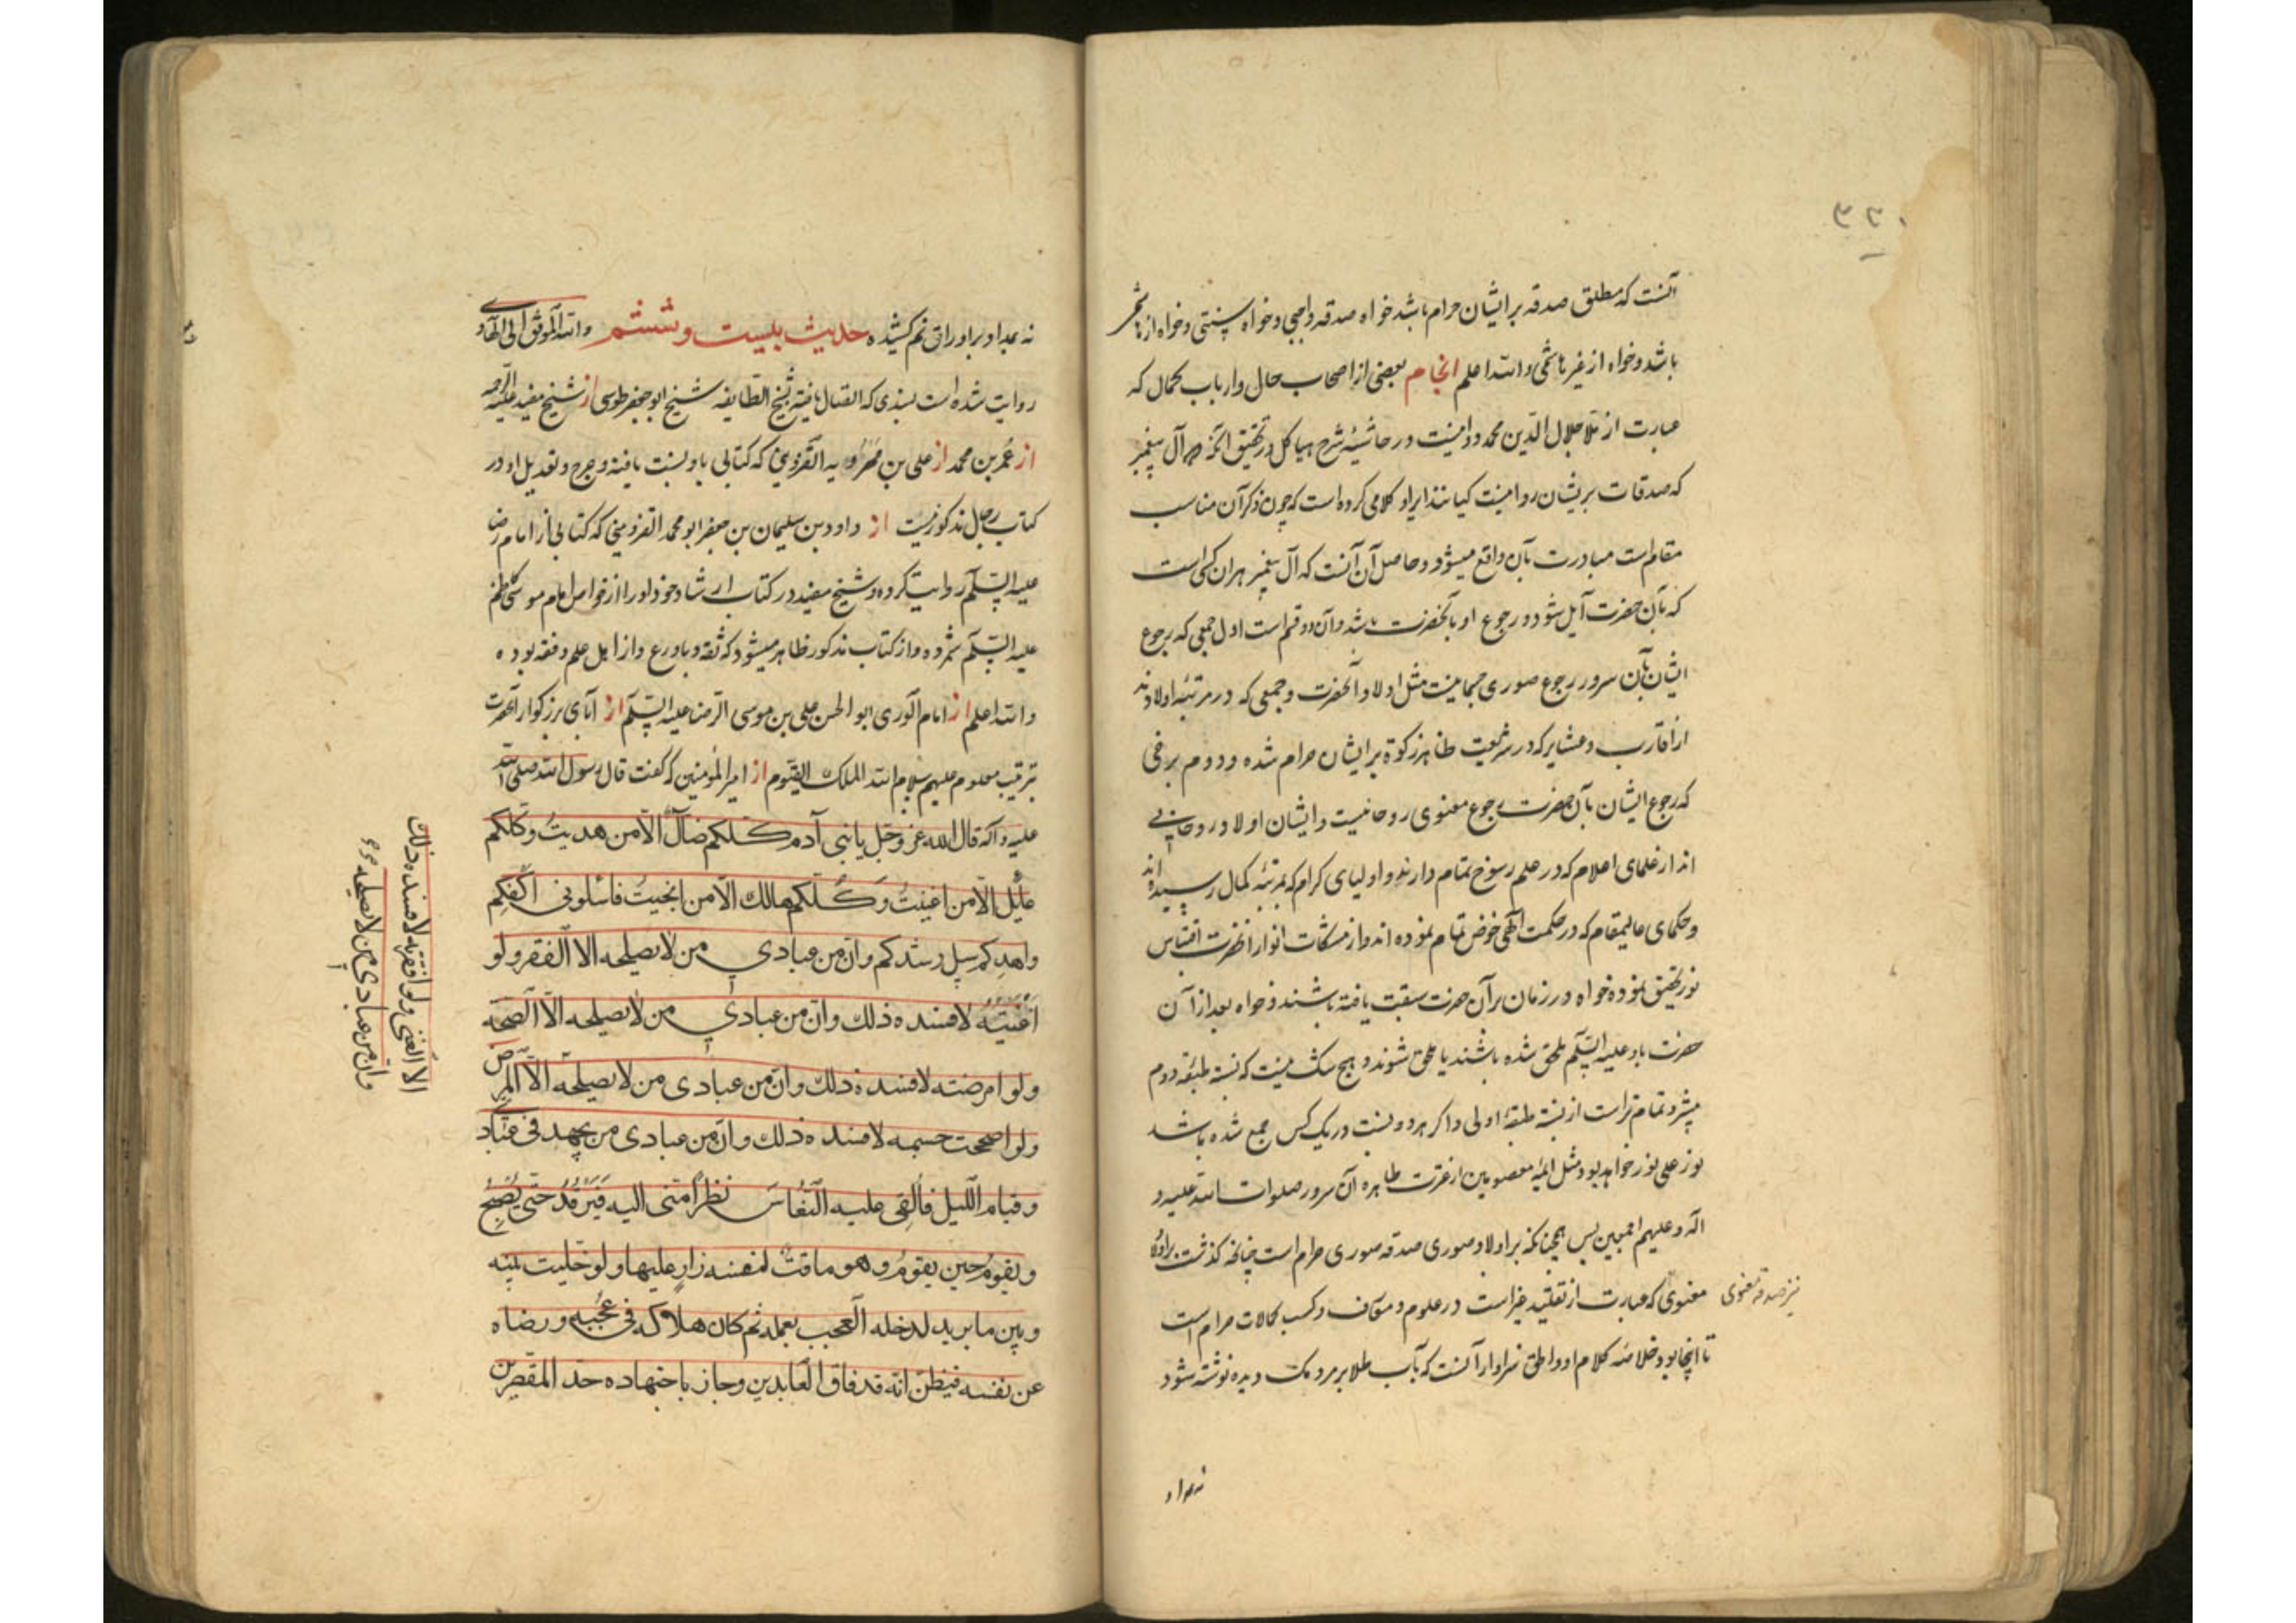 ۳۲۰
آنست که مطلق صدقه بر ایشان حرام باشد خواه صدقه واجبی و خواه سنتی و خواه از هاشمی
باشد و خواه از غیر هاشمی و الله اعلم انجام بعضی از اصحاب حال و ارباب کمال که
عبارت از ملا جلال الدین محمد دوانیست در حاشیه شرح هیاکل در تحقیق آنکه آل پیغمبر
که صدقات بریشان روا نیست کیانند ایراد کلامی کرده است که چون ذکر آن مناسب
مقام است مبادرت بآن واقع میشود و حاصل آن آنست که آل پیغمبر هر آن کسی است
که بآن حضرت آیل شود و رجوع او بآنحضرت باشد و آن دو قسم است اول جمعی که رجوع
ایشان بآن سرور رجوع صوری جسمانیست مثل اولاد آنحضرت و جمعی که در مرتبه اولادند
از اقارب و عشایر که در شریعت ظاهر زکوة بر ایشان حرام شده و دوم برخی
که رجوع ایشان بآن حضرت رجوع معنوی روحانیست و ایشان اولاد روحانی
اند از علمای اعلام که در علم رسوخ تمام دارند و اولیای کرام که بمرتبه کمال رسیده اند
و حکمای عالیمقام که در حکمت الهی خوض تمام نموده اند و از مشکات انوار آنحضرت اقتباس
نور تحقیق نموده خواه در زمان بر آن حضرت سبقت یافته باشند و خواه بعد از آن
حضرت باو علیه السلام ملحق شده باشند یا ملحق شوند و هیچ شک نیست که نسبة طبقه دوم
پیشتر و تمام تر است از نسبة طبقه اولی و اگر هر دو نسبت در یک کس جمع شده باشد
نور علی نور خواهد بود مثل ائمه معصومین از عترت طاهره آن سرور صلوات الله علیه و
آله و علیهم اجمعین پس همچنانکه بر اولاد صوری صدقه صوری حرام است چنانکه گذشت بر اولاد
معنوی که عبارت از تقلید غیر است در علوم و معارف و کسب کمالات حرام است
نیز صدقه معنوی
تا اینجا بود خلاصه کلام او و الحق سزاوار آنست که بآب طلا بر مردمک دیده نوشته شود
نه بمداد
نه بمداد بر اوراق نم کشیده حدیث بیست و ششم والله الموفق الی الهادی
روایت شده است بسندی که اتصال یافته بشیخ الطایفه شیخ ابو جعفر طوسی از شیخ مفید علیه الرحمه
از عمر بن محمد از علی بن مهرویه القزوینی که کتابی باو نسبت یافته و جرح و تعدیل او در
کتاب رجال مذکور نیست از داود بن سلیمان بن جعفر ابو محمد القزوینی که کتابی از امام رضا
علیه السلم روایت کرده و شیخ مفید در کتاب ارشاد خود او را از خواص امام موسی کاظم
علیه السلم شمرده و از کتاب مذکور ظاهر میشود که ثقه و باورع و از اهل علم و فقه بوده
والله اعلم از امام الوری ابو الحسن علی بن موسی الرضا علیه السلم از آبای بزرکوار آنحضرت
بترتیب معلوم علیهم سلام الله الملک القیوم از امیر المؤمنین که کفت قال رسول الله صلی الله
علیه وآله قال الله عز وجل یا بنی آدم کلکم ضال الا من هدیت وکلکم
عایل الا من اغنیت وکلکم هالک الا من انجیت فاسئلونی اکفکم
واهدکم سبیل رشدکم وان من عبادی من لا یصلحه الا الفقر ولو
اغنیته لافسده ذلک وان من عبادی من لا یصلحه الا الصحة
ولو امرضته لافسده ذلک وان من عبادی من لا یصلحه الا المرض
ولو اصححت جسمه لافسده ذلک وان من عبادی من یجهد فی عبادتی
وقیام اللیل فالقی علیه النعاس نظرا منی الیه فیرقد حتی یصبح
ویقوم حین یقوم وهو ماقت لنفسه زار علیها ولو خلیت بینه
وبین ما یرید لدخله العجب بعمله ثم کان هلاکه فی عجبه ورضاه
عن نفسه فیظن انه قد فاق العابدین وجاز باجتهاده حد المقصرین
وان من عبادی من لا یصلحه
الا الغنی ولو افقرته لافسده ذلک